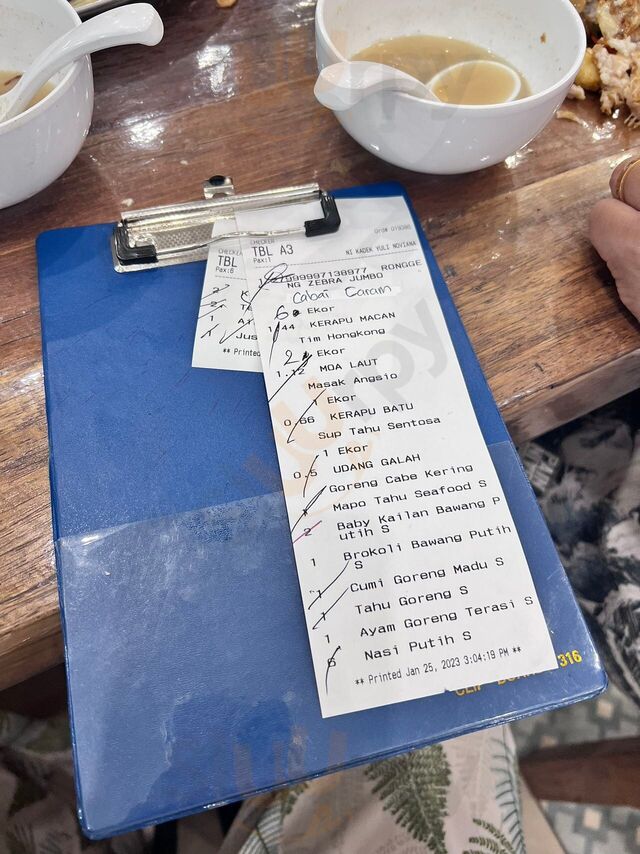 CHECKER
TBL
Pax:6
Jus
** Printed
CHECKER
Ord# 019386
TBL A3
Pax:1
NI KADEK YULI NOVIANA
RONGGE
NG ZEBRA JUMBO
Cabai Garam
6 Ekor
1.44 KERAPU MACAN
Tim Hongkong
2 Ekor
1.12 MOA LAUT
Masak Angsio
1 Ekor
0.66 KERAPU BATU
Sup Tahu Sentosa
1 Ekor
0.5 UDANG GALAH
Goreng Cabe Kering
Mapo Tahu Seafood S
2 Baby Kailan Bawang P
utih S
1 Brokoli Bawang Putih
S
1 Cumi Goreng Madu S
1 Tahu Goreng S
1 Ayam Goreng Terasi S
6 Nasi Putih S
** Printed Jan 25, 2023 3:04:19 PM **
316